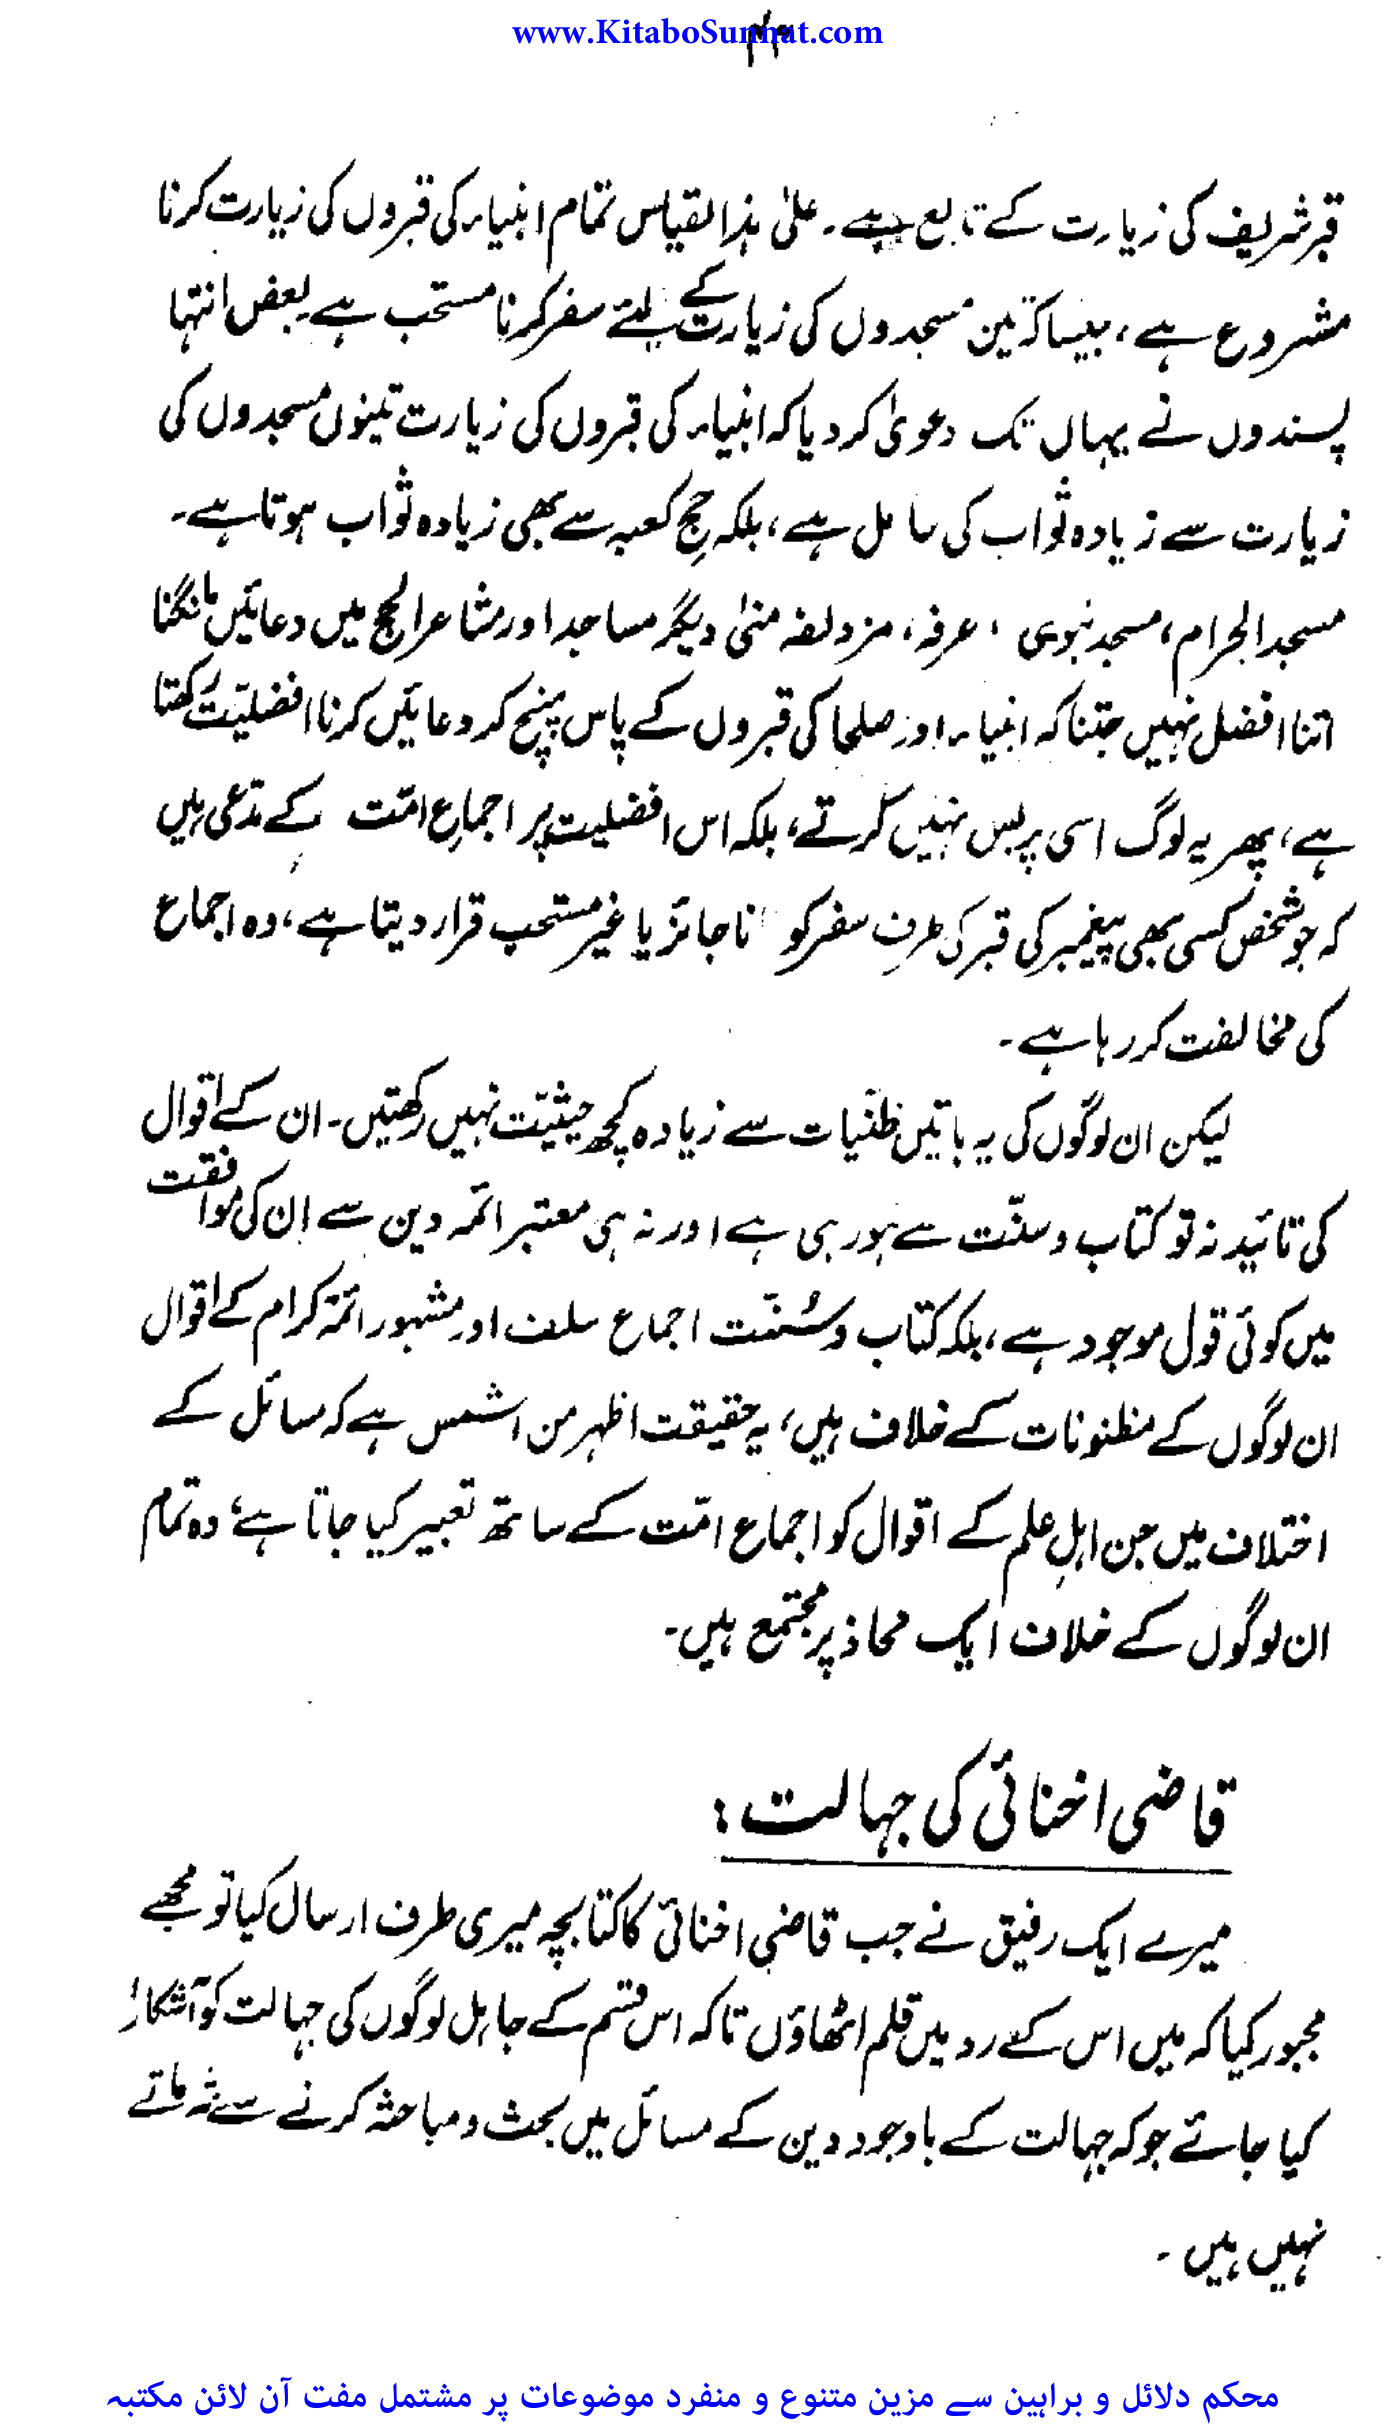 www.KitaboSunnat.com
قبر شریف کی زیارت کے تابع ہے۔ علیٰ ہذا القیاس تمام انبیاء کی قبروں کی زیارت کرنا
مشروع ہے، جیسا کہ تین مسجدوں کی زیارت کے لئے سفر کرنا مستحب ہے بعض انتہا
پسندوں نے یہاں تک دعویٰ کر دیا کہ انبیاء کی قبروں کی زیارت تینوں مسجدوں کی
زیارت سے زیادہ ثواب کی حامل ہے، بلکہ حج کعبہ سے بھی زیادہ ثواب ہوتا ہے۔
مسجد الحرام، مسجد نبوی، عرفہ، مزدلفہ منیٰ دیگر مساجد اور مشاعر الحج میں دعائیں مانگنا
اتنا افضل نہیں جتنا کہ انبیاء اور صلحا کی قبروں کے پاس پہنچ کر دعائیں کرنا افضلیّت رکھتا
ہے، پھر یہ لوگ اسی پر بس نہیں کرتے، بلکہ اس افضلیت پر اجماعِ امّت کے مدّعی ہیں
کہ جو شخص کسی بھی پیغمبر کی قبر کی طرف سفر کو ناجائز یا غیر مستحب قرار دیتا ہے، وہ اجماع
کی مخالفت کر رہا ہے۔
لیکن ان لوگوں کی یہ باتیں ظنّیات سے زیادہ کچھ حیثیّت نہیں رکھتیں۔ ان کے اقوال
کی تائید نہ تو کتاب و سنّت سے ہو رہی ہے اور نہ ہی معتبر ائمہ دین سے ان کی موافقت
میں کوئی قول موجود ہے، بلکہ کتاب و سُنّت اجماع سلف اور مشہور ائمۃ کرام کے اقوال
ان لوگوں کے مظنونات کے خلاف ہیں، یہ حقیقت اظہر من الشمس ہے کہ مسائل کے
اختلاف میں جن اہلِ علم کے اقوال کو اجماع امّت کے ساتھ تعبیر کیا جاتا ہے، وہ تمام
ان لوگوں کے خلاف ایک محاذ پر مجتمع ہیں۔
قاضی اخنائی کی جہالت:
میرے ایک رفیق نے جب قاضی اخنائی کا کتابچہ میری طرف ارسال کیا تو مجھے
مجبور کیا کہ میں اس کے رد میں قلم اٹھاؤں تاکہ اس قسم کے جاہل لوگوں کی جہالت کو آشکارا
کیا جائے جو کہ جہالت کے باوجود دین کے مسائل میں بحث و مباحثہ کرنے سے شرماتے
نہیں ہیں۔
محکم دلائل و براہین سے مزین متنوع و منفرد موضوعات پر مشتمل مفت آن لائن مکتبہ